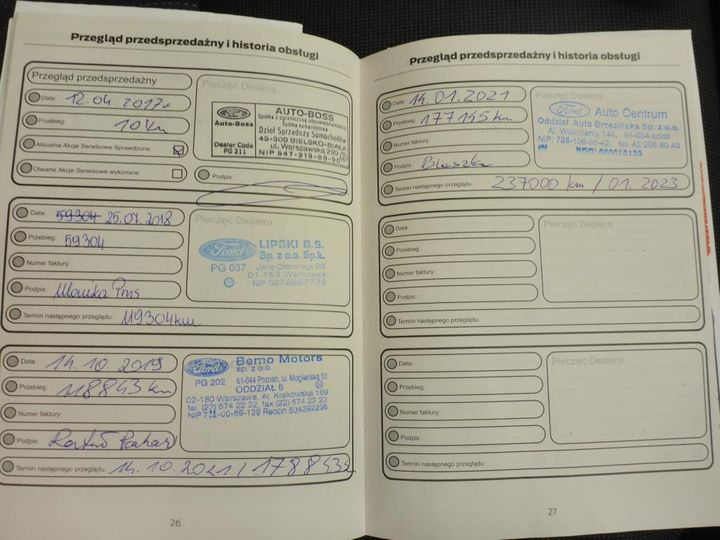 Przegląd przedsprzedażny i historia obsługi
Przegląd przedsprzedażny
Data: 12.04.2017r
Przebieg: 10 km
Aktualne Akcje Serwisowe Sprawdzone
Otwarte Akcje Serwisowe wykonane:
Pieczęć Dealera
Ford
Auto-Boss
Dealer Code
PG 211
AUTO-BOSS
Spółka z ograniczoną odpowiedzialnością
Spółka komandytowa
Dział Sprzedaży Samochodów
43-300 BIELSKO-BIAŁA
ul. Warszawska 209
Podpis:
Data: 59304 25.07.2018
Przebieg: 59304
Numer faktury:
Podpis: Monika
Termin następnego przeglądu: 119304km
Pieczęć Dealera
Ford
PG 037
LIPSKI B.S.
Sp. z o.o. Sp.k.
01-163 Warszawa
Data: 14.10.2019
Przebieg: 118843 km
Numer faktury:
Podpis:
Termin następnego przeglądu: 14.10.2021 / 178843
Ford
PG 202
Bemo Motors
sp. z o.o.
61-044 Poznań,
ODDZIAŁ 5
02-180 Warszawa, Al. Krakowska
tel. (22) 574 22 22, fax (22) 574 22 23
26
Przegląd przedsprzedażny i historia obsługi
Data: 14.01.2021
Przebieg: 177145 km
Numer faktury:
Podpis:
Termin następnego przeglądu: 237000 km / 01.2023
Pieczęć Dealera
Ford
Auto Centrum
Oddział Auto Brzezińska Sp. z o.o.
91-034 Łódź
tel. 42 206 80 40
Data:
Przebieg:
Numer faktury:
Podpis:
Termin następnego przeglądu:
Pieczęć Dealera
Data:
Przebieg:
Numer faktury:
Podpis:
Termin następnego przeglądu:
Pieczęć Dealera
27